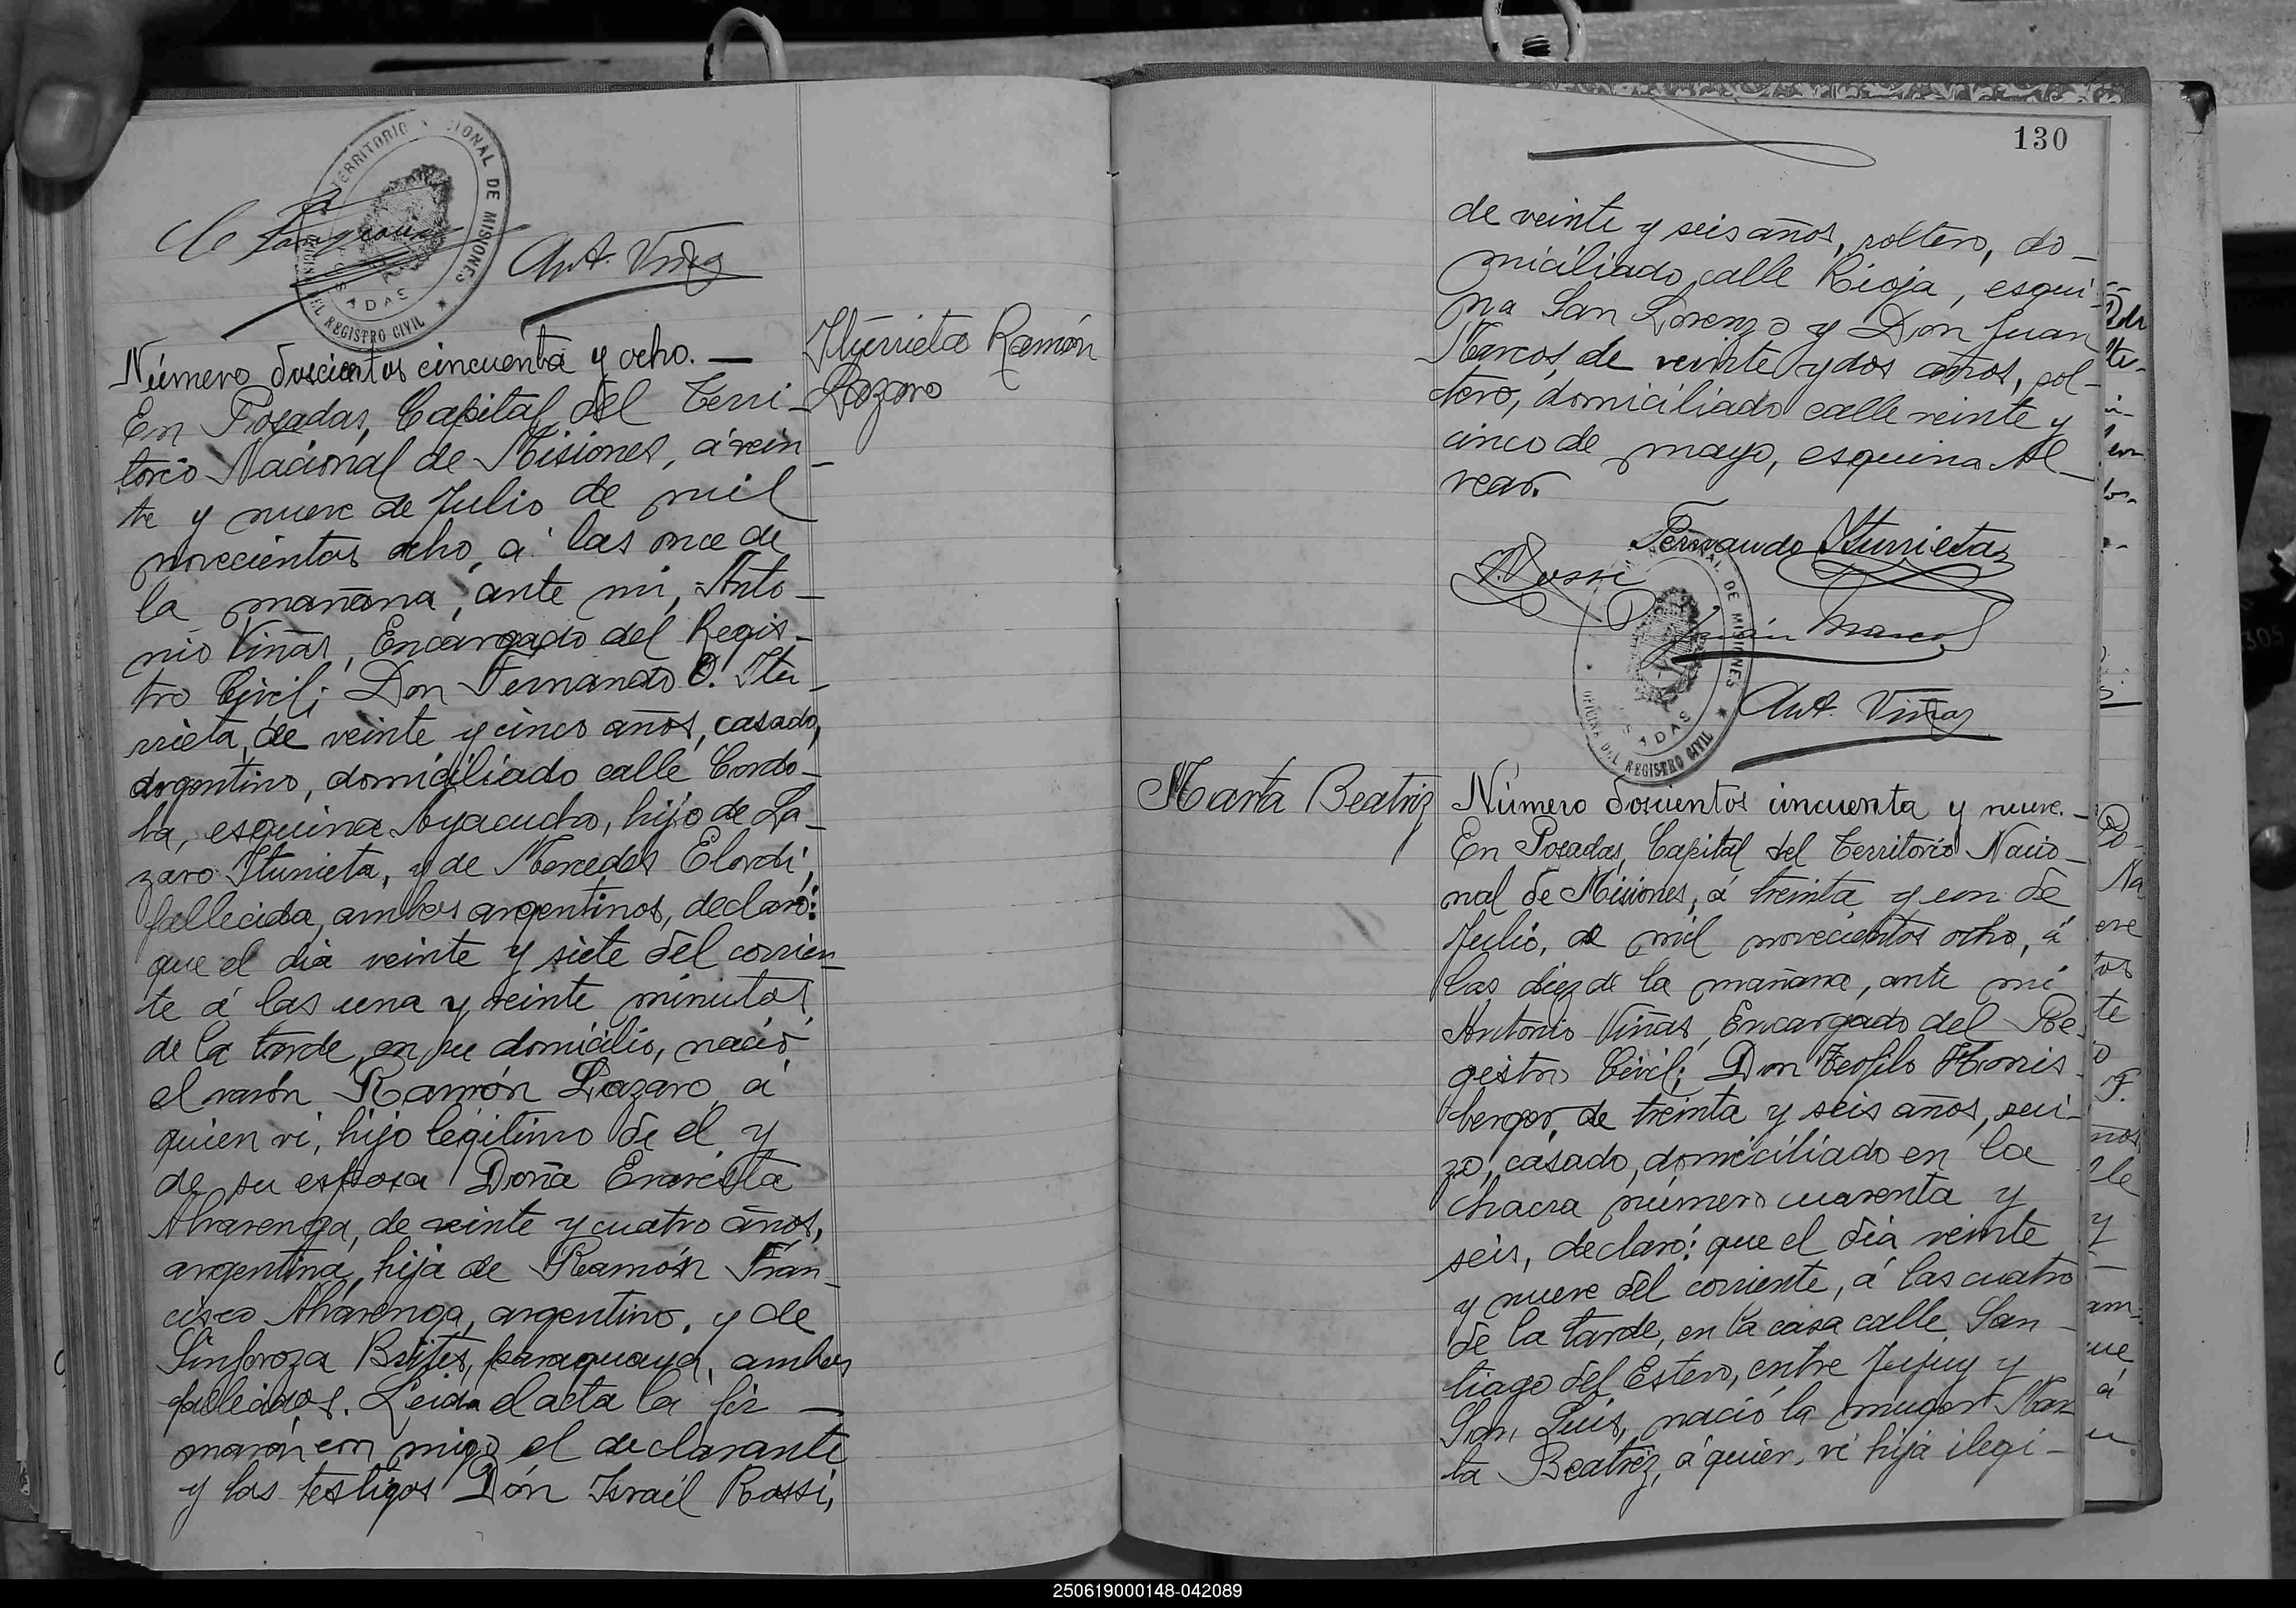 TERRITORIO NACIONAL DE MISIONES
OFICINA DEL REGISTRO CIVIL
POSADAS
Ant. Viñas
Iturrieta Ramón
Lazaro
Número doscientos cincuenta y ocho. —
En Posadas, Capital del Terri-
torio Nacional de Misiones, á vein-
te y nueve de Julio de mil
novecientos ocho, á las once de
la mañana, ante mi, Anto-
nio Viñas, Encargado del Regis-
tro Civil; Don Fernando O. Itu-
rrieta, de veinte y cinco años, casado,
argentino, domiciliado calle Cordo-
ba, esquina Ayacucho, hijo de La-
zaro Iturrieta, y de Mercedes Elordi,
fallecida, ambos argentinos, declaró:
que el dia veinte y siete del corrien-
te á las una y veinte minutos
de la tarde, en su domicilio, nació
el varón Ramón Lazaro, á
quien vi, hijo legitimo de él y
de su esposa Doña
Alvarenga, de veinte y cuatro años,
argentina, hija de Ramón Fran-
cisco Alvarenga, argentino, y de
Sinforoza Brites, paraguaya, ambos
fallecidos. Leida el acta la fir-
maron con migo el declarante
y los testigos Dón Israél Rossi,
130
de veinte y seis años, soltero, do-
miciliado calle Rioja, esqui-
na San Lorenzo y Dón Juan
Marcos, de veinte y dos años, sol-
tero, domiciliado calle veinte y
cinco de mayo, esquina Al-
vear.
Fernando Iturrieta
I. Rossi
Juan Marcos
DE MISIONES
OFICINA DEL REGISTRO CIVIL
POSADAS
Ant. Viñas
Marta Beatriz
Número doscientos cincuenta y nueve. —
En Posadas, Capital del Territorio Nacio-
nal de Misiones, á treinta y un de
Julio, de mil novecientos ocho, á
las diez de la mañana, ante mi
Antonio Viñas, Encargado del Re-
gistro Civil; Don Teofilo Horris
berger, de treinta y seis años, sui-
zo, casado, domiciliado en la
chacra número cuarenta y
seis, declaró: que el dia veinte
y nueve del corriente, á las cuatro
de la tarde, en la casa calle San-
tiago del Estero, entre Jujuy y
San Luis, nació la muger Mar-
ta Beatriz, á quien vi hija ilegi-
250619000148-042089